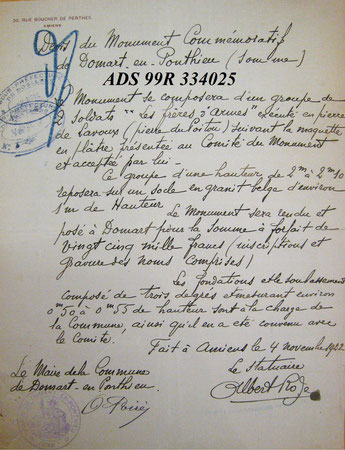 30, RUE BOUCHER DE PERTHES
AMIENS
Devis du Monument Commémoratif
de Domart-en-Ponthieu (Somme)
ADS 99R 334025
Le Monument se composera d'un groupe de
2 Soldats "Les frères d'Armes" exécuté en pierre
de Lavoux (pierre du Poitou) suivant la maquette
en plâtre présentée au Comité du Monument
et acceptée par lui -
Ce groupe d'une hauteur de 2m à 2m10
reposera sur un socle en granit belge d'environ
1m de Hauteur
Le Monument sera rendu et
posé à Domart pour la somme à forfait de
vingt cinq mille francs (inscriptions et
gravure des noms comprises)
Les fondations et le soubassement
composé de trois degrés et mesurant environ
0m50 à 0m55 de hauteur sont à la charge de
la Commune, ainsi qu'il en a été convenu avec
le Comité.
Fait à Amiens le 4 novembre 1922
Le Maire de la Commune
de Domart en Ponthieu
Le Statuaire
Albert Roze